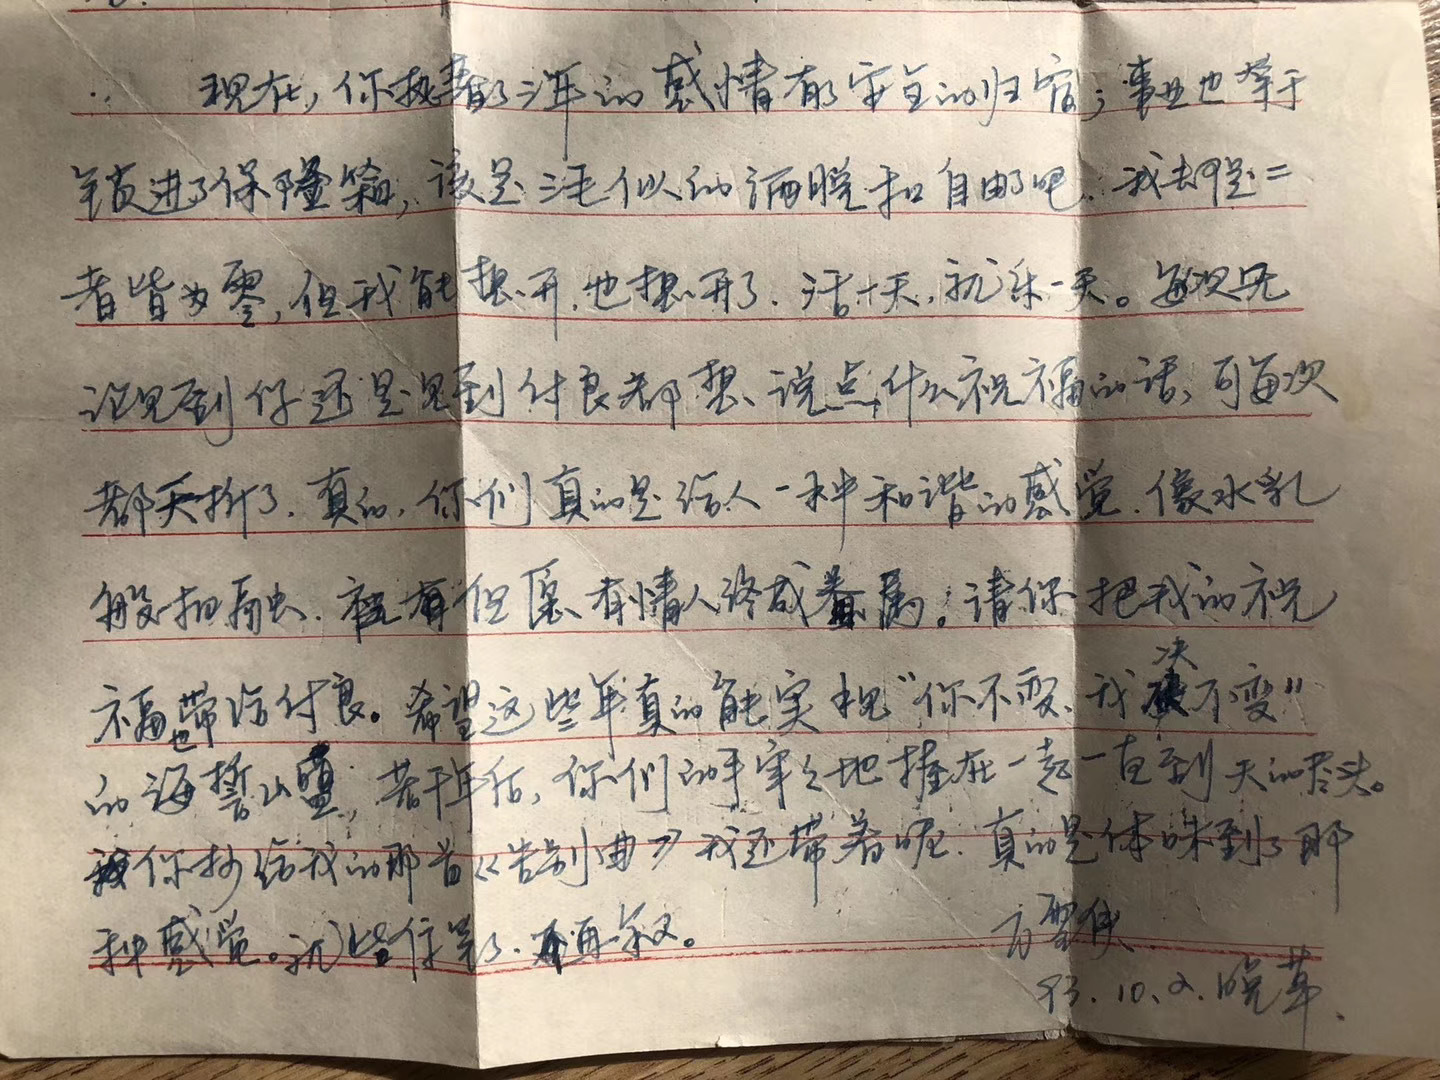 现在，你执着了三年的感情有了安全的归宿；事业也等于
锁进了保险箱，该是三毛似的洒脱和自由了吧．我去
者皆为零，但我能想开．也想开了．活一天，就乐一天。每次无
论见到你还是见到付良都想说点什么祝福的话，可每次
都夭折了．真的，你们真的是给人一种和谐的感觉．像水乳
般相融．但愿有情人终成眷属。请你把我的祝
福也带给付良。希望这些年真的能实现"你不变、我决不变"
的海誓山盟，若干年后，你们的手牢牢地握在一起一直到天的尽头。
你抄给我的那首《告别曲》我还带着呢．真的是体味到了那
种感觉。就此住笔了．再叙。
93.10.2.晚草．